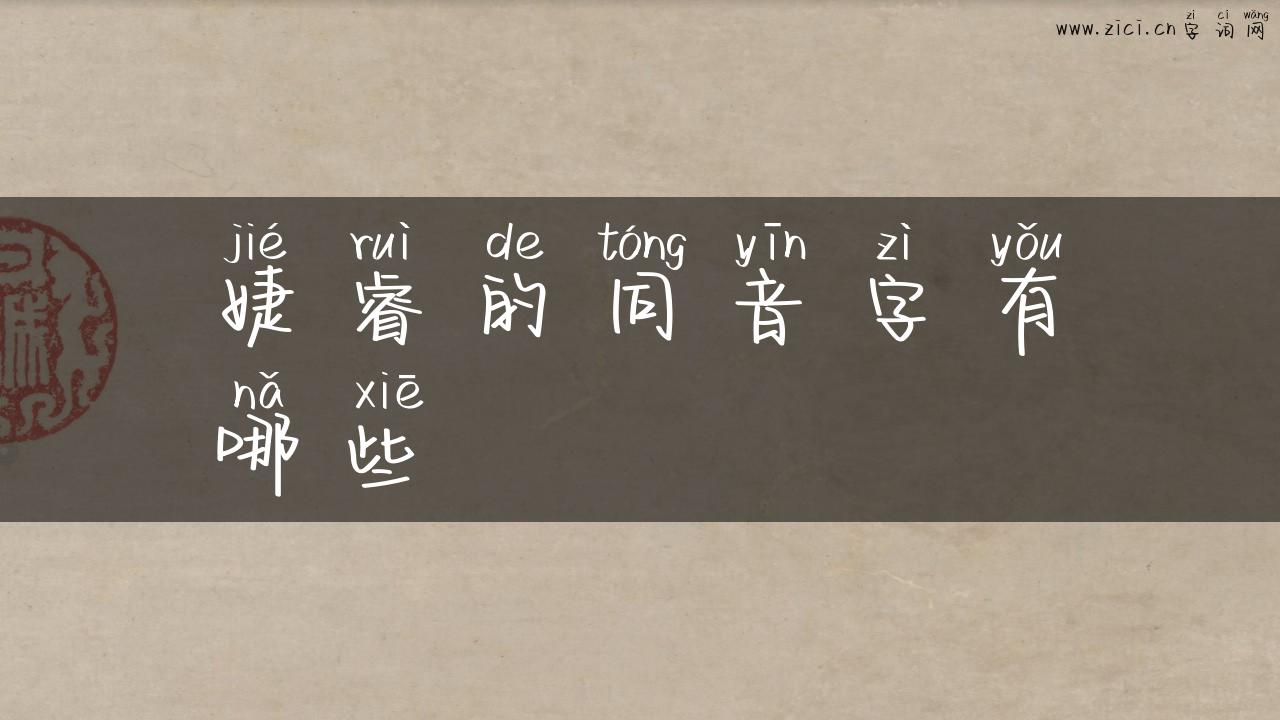 zì cí wǎng
www.zici.cn字词网
jié ruì de tóng yīn zì yǒu
婕睿的同音字有
nǎ xiē
哪些